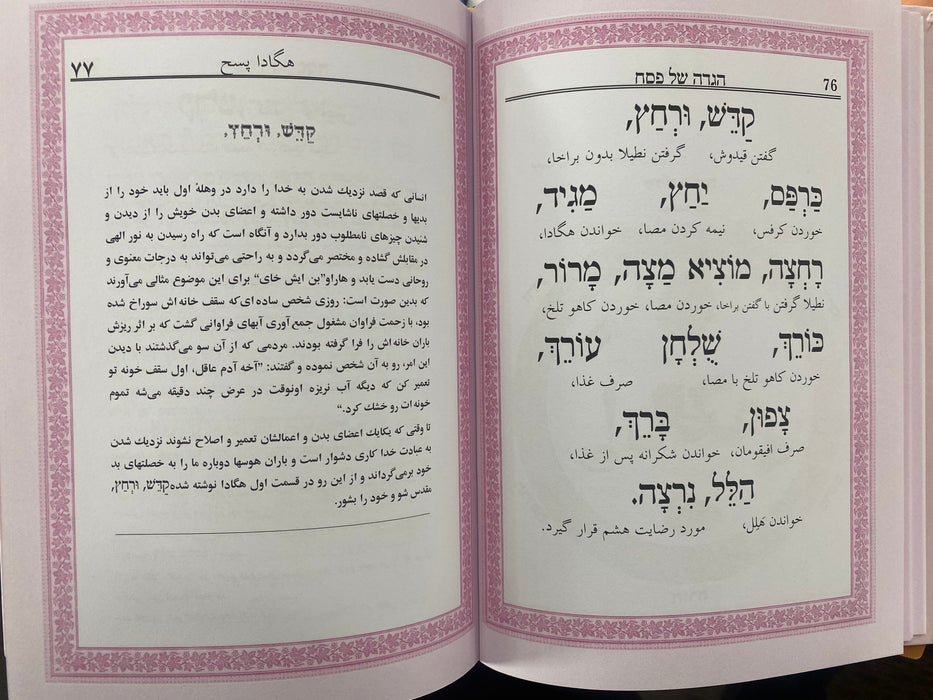 הגדה של פסח 76
קַדֵּשׁ, וּרְחַץ,
گفتن قیدوش، گرفتن نطیلا بدون براخا،
כַּרְפַּס, יַחַץ, מַגִּיד,
خوردن کرفس، نیمه کردن مصا، خواندن هگادا،
רָחְצָה, מוֹצִיא מַצָּה, מָרוֹר,
نطیلا گرفتن با گفتن براخا، خوردن مصا، خوردن کاهو تلخ،
כּוֹרֵךְ, שֻׁלְחָן עוֹרֵךְ,
خوردن کاهو تلخ با مصا، صرف غذا،
צָפוּן, בָּרֵךְ,
صرف افیقومان، خواندن شکرانه پس از غذا،
הַלֵּל, נִרְצָה.
خواندن هَلِل، مورد رضایت هشم قرار گیرد.
هگادا پسح ۷۷
קַדֵּשׁ, וּרְחַץ,
انسانی که قصد نزدیك شدن به خدا را دارد در وهلهٔ اول باید خود را از
بدیها و خصلتهای ناشایست دور داشته و اعضای بدن خویش را از دیدن و
شنیدن چیزهای نامطلوب دور بدارد و آنگاه است که راه رسیدن به نور الهی
در مقابلش گشاده و مختصر می‌گردد و به راحتی می‌تواند به درجات معنوی و
روحانی دست یابد و هاراو”بن ایش خای“ برای این موضوع مثالی می‌آورند
که بدین صورت است: روزی شخص ساده ای‌که سقف خانه اش سوراخ شده
بود، با زحمت فراوان مشغول جمع‌آوری آبهای فراوانی گشت که بر اثر ریزش
باران خانه‌اش را فرا گرفته بودند. مردمی که از آن سو می‌گذشتند با دیدن
این امر، رو به آن شخص نموده و گفتند: ”آخه آدم عاقل، اول سقف خونه تو
تعمیر کن که دیگه آب نریزه اونوقت در عرض چند دقیقه می‌شه تموم
خونه ات رو خشك کرد.“
تا وقتی که یکایك اعضای بدن و اعمالشان تعمیر و اصلاح نشوند نزدیك شدن
به عبادت خدا کاری دشوار است و باران هوسها دوباره ما را به خصلتهای بد
خود برمی‌گرداند و از این رو در قسمت اول هگادا نوشته شده קַדֵּשׁ, וּרְחַץ,
مقدس شو و خود را بشور.